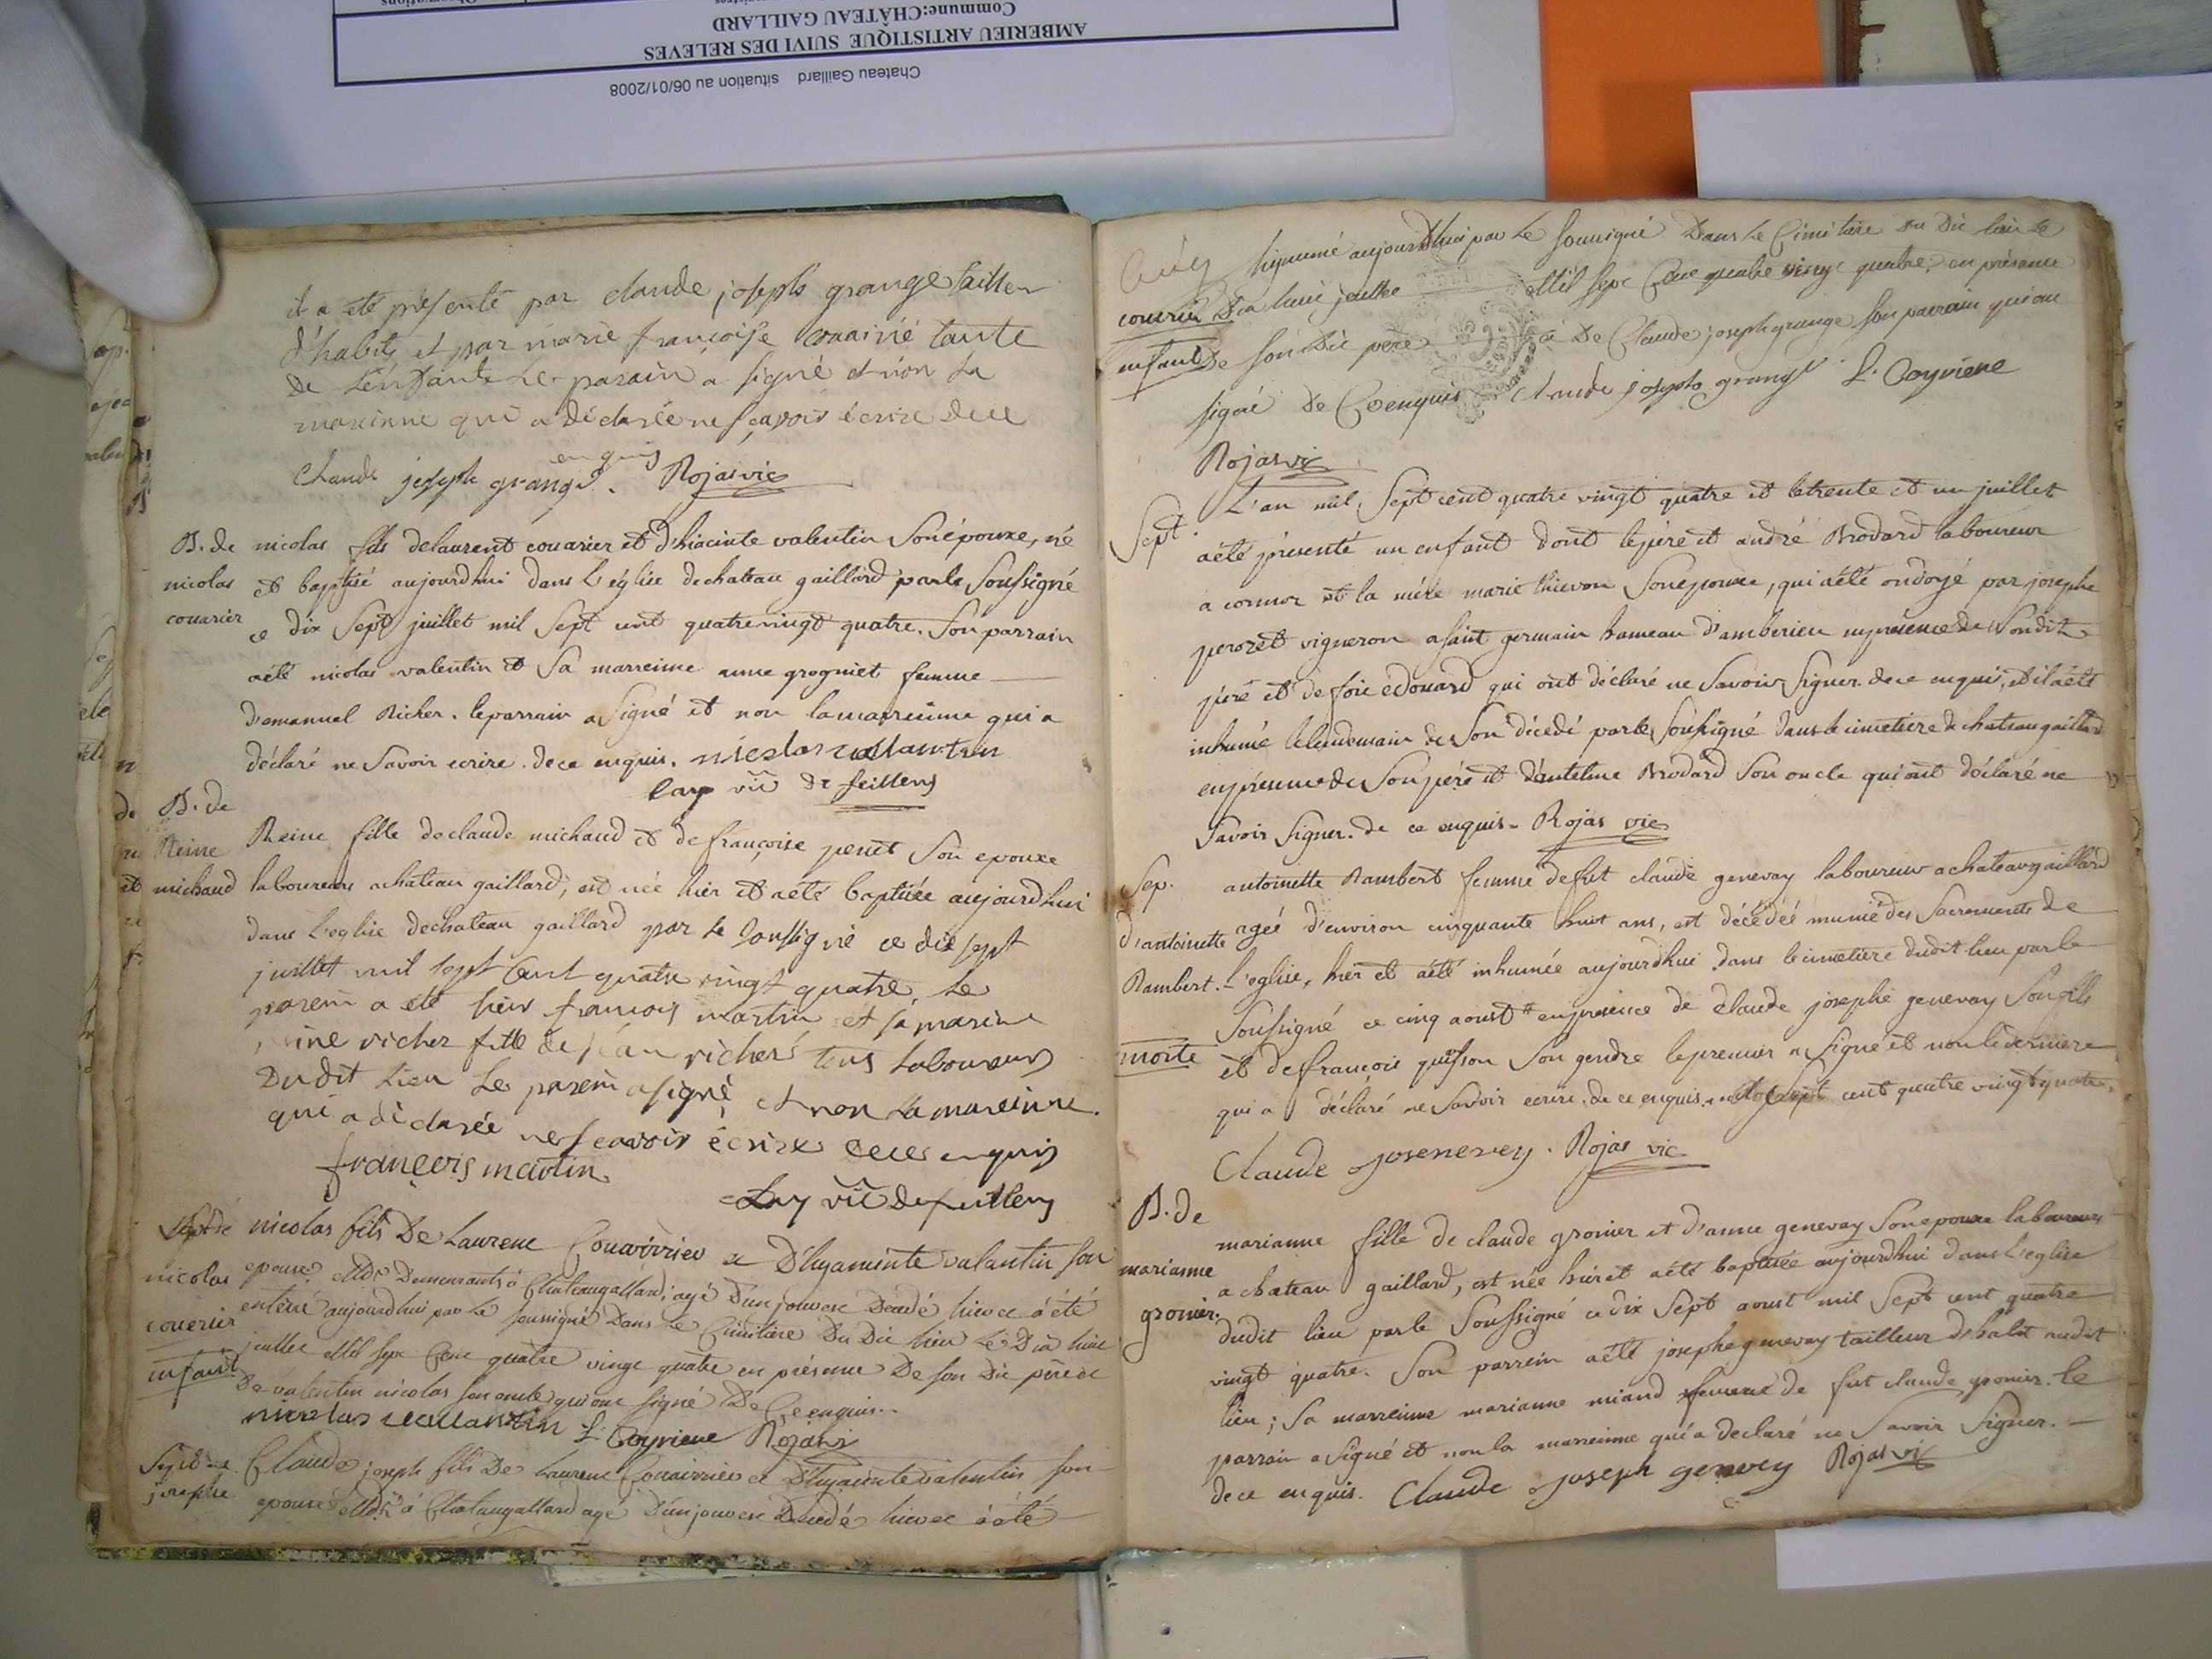 Commune:CHÂTEAU GAILLARD
AMBERIEU ARTISTIQUE SUIVI DES RELEVES
Chateau Gaillard situation au 06/01/2008
il a eté présenté par claude joseph grange tailleur
d'habits et par marie françoise couarié tante
de L'enfant Le parain a signé et non La
mareinne qui a déclarée ne sçavoir écrire dece
enquis
Claude joseph grange. Rojas vic
B. de nicolas fils de laurent couarier et d'hiacinte valentin son épouxe, né
nicolas et baptisé aujourdhui dans l'église de chateau gaillard par le soussigné
couarier ce dix sept juillet mil sept cent quatrevingt quatre. son parrain
a été nicolas valentin et sa marreinne anne grogniet femme
d'emanuel Richer. le parrain a signé et non la marreinne qui a
déclaré ne savoir ecrire. de ce enquis. nicolas vallantin
vic de feillens
B. de
Reine Reine fille de claude michaud et de françoise perret son epouxe
michaud laboureurs a chateau gaillard, est née hier et a été baptisée aujourdhui
dans l'eglise de chateau gaillard par le soussigné ce dix sept
juillet mil sept cent quatre vingt quatre, Le
parein a eté françois martin et sa mareine
richer fille de jean richer tous laboureurs
Du dit Lieu Le parein a signé et non La mareinne.
qui a déclarée ne sçavoir écrire dece enquis
françois martin
vic de feillens
nicolas fils De Laurent Couarrier et D'hyaninte valantin son
nicolas epouse Demeurants à Chateaugallard, agé D'un jour est Decedé hier et a été
couerier enterré aujourdhui par Le soussigné Dans Le Cimitière Du Dit lieu Le Dix huit
enfant juillet Mil sept Cent quatre vingt quatre en présence De son Dit père et
De valentin nicolas son oncle qui ont signé De Ce enquis.
nicolas vallantin L. Rojas vic
Claude joseph fils De Laurent Couairrier et D'hyaninte valentin son
josephe epouse à Chateaugallard agé D'un jour est Decedé hier et a été
inhumé aujourdhui par Le soussigné Dans Le Cimitière Du Dit lieu Le
couerier Dix huit juillet Mil sept Cent quatre vingt quatre, en présence
enfant De son Dit père et De Claude joseph grange son parrain qui ont
signé De Ce enquis Claude joseph grange L.
Rojas vic
Sept. L'an mil sept cent quatre vingt quatre et le trente et un juillet
a été présenté un enfant dont le père est andré Brodard laboureur
a cormoz et la mère marie thievon son epouxe, qui a été ondoyé par josephe
perozet vigneron a saint germain hameau d'amberieu en présence de son dit
père et de foie edouard qui ont déclaré ne savoir signer. de ce enquis, et il a été
inhumé le lendemain de son décedé par le soussigné dans le cimetiere de chateau gaillard
en présence de son père et d'antelme Brodard son oncle qui ont déclaré ne
savoir signer. de ce enquis. Rojas vic
Sep. antoinette Rambert femme de fut claude genevay laboureur a chateaugaillard
d'antoinette ageé d'environ cinquante huit ans, est décédée munie des Sacrements de
Rambert. L'eglise, hier et a été inhumée aujourdhui dans le cimetiere dudit lieu par le
soussigné ce cinq aoust en présence de claude josephe genevay son fils
morte et de françois quisson son gendre le premier a signé et non le derniere
qui a déclaré ne savoir ecrire. de ce enquis. mil sept cent quatre vingt quatre.
Claude Rojas vic
B. de
marianne marianne fille de claude gronier et d'anne genevay son epouxe laboureurs
gronier. a chateau gaillard, est née hier et a été baptisée aujourdhui dans l'eglise
dudit lieu par le soussigné ce dix sept aoust mil sept cent quatre
vingt quatre. Son parrein a été josephe genevay tailleur d'habit audit
lieu; sa marreinne marianne miand femme de fut claude gronier. le
parrain a signé et non la marreinne qui a declaré ne savoir signer.
de ce enquis. Claude joseph genvey Rojas vic